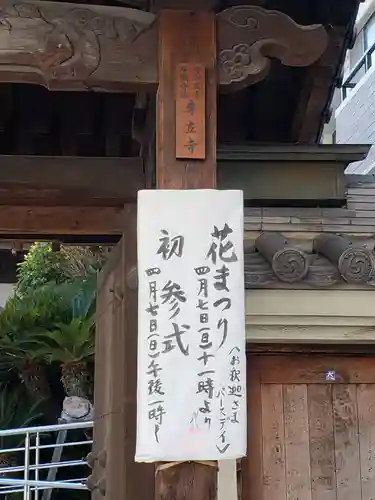 専立寺
花まつり
四月七日(日)十一時より
(お釈迦さま
バースデイ)
初参式
四月七日(日)午後一時〜